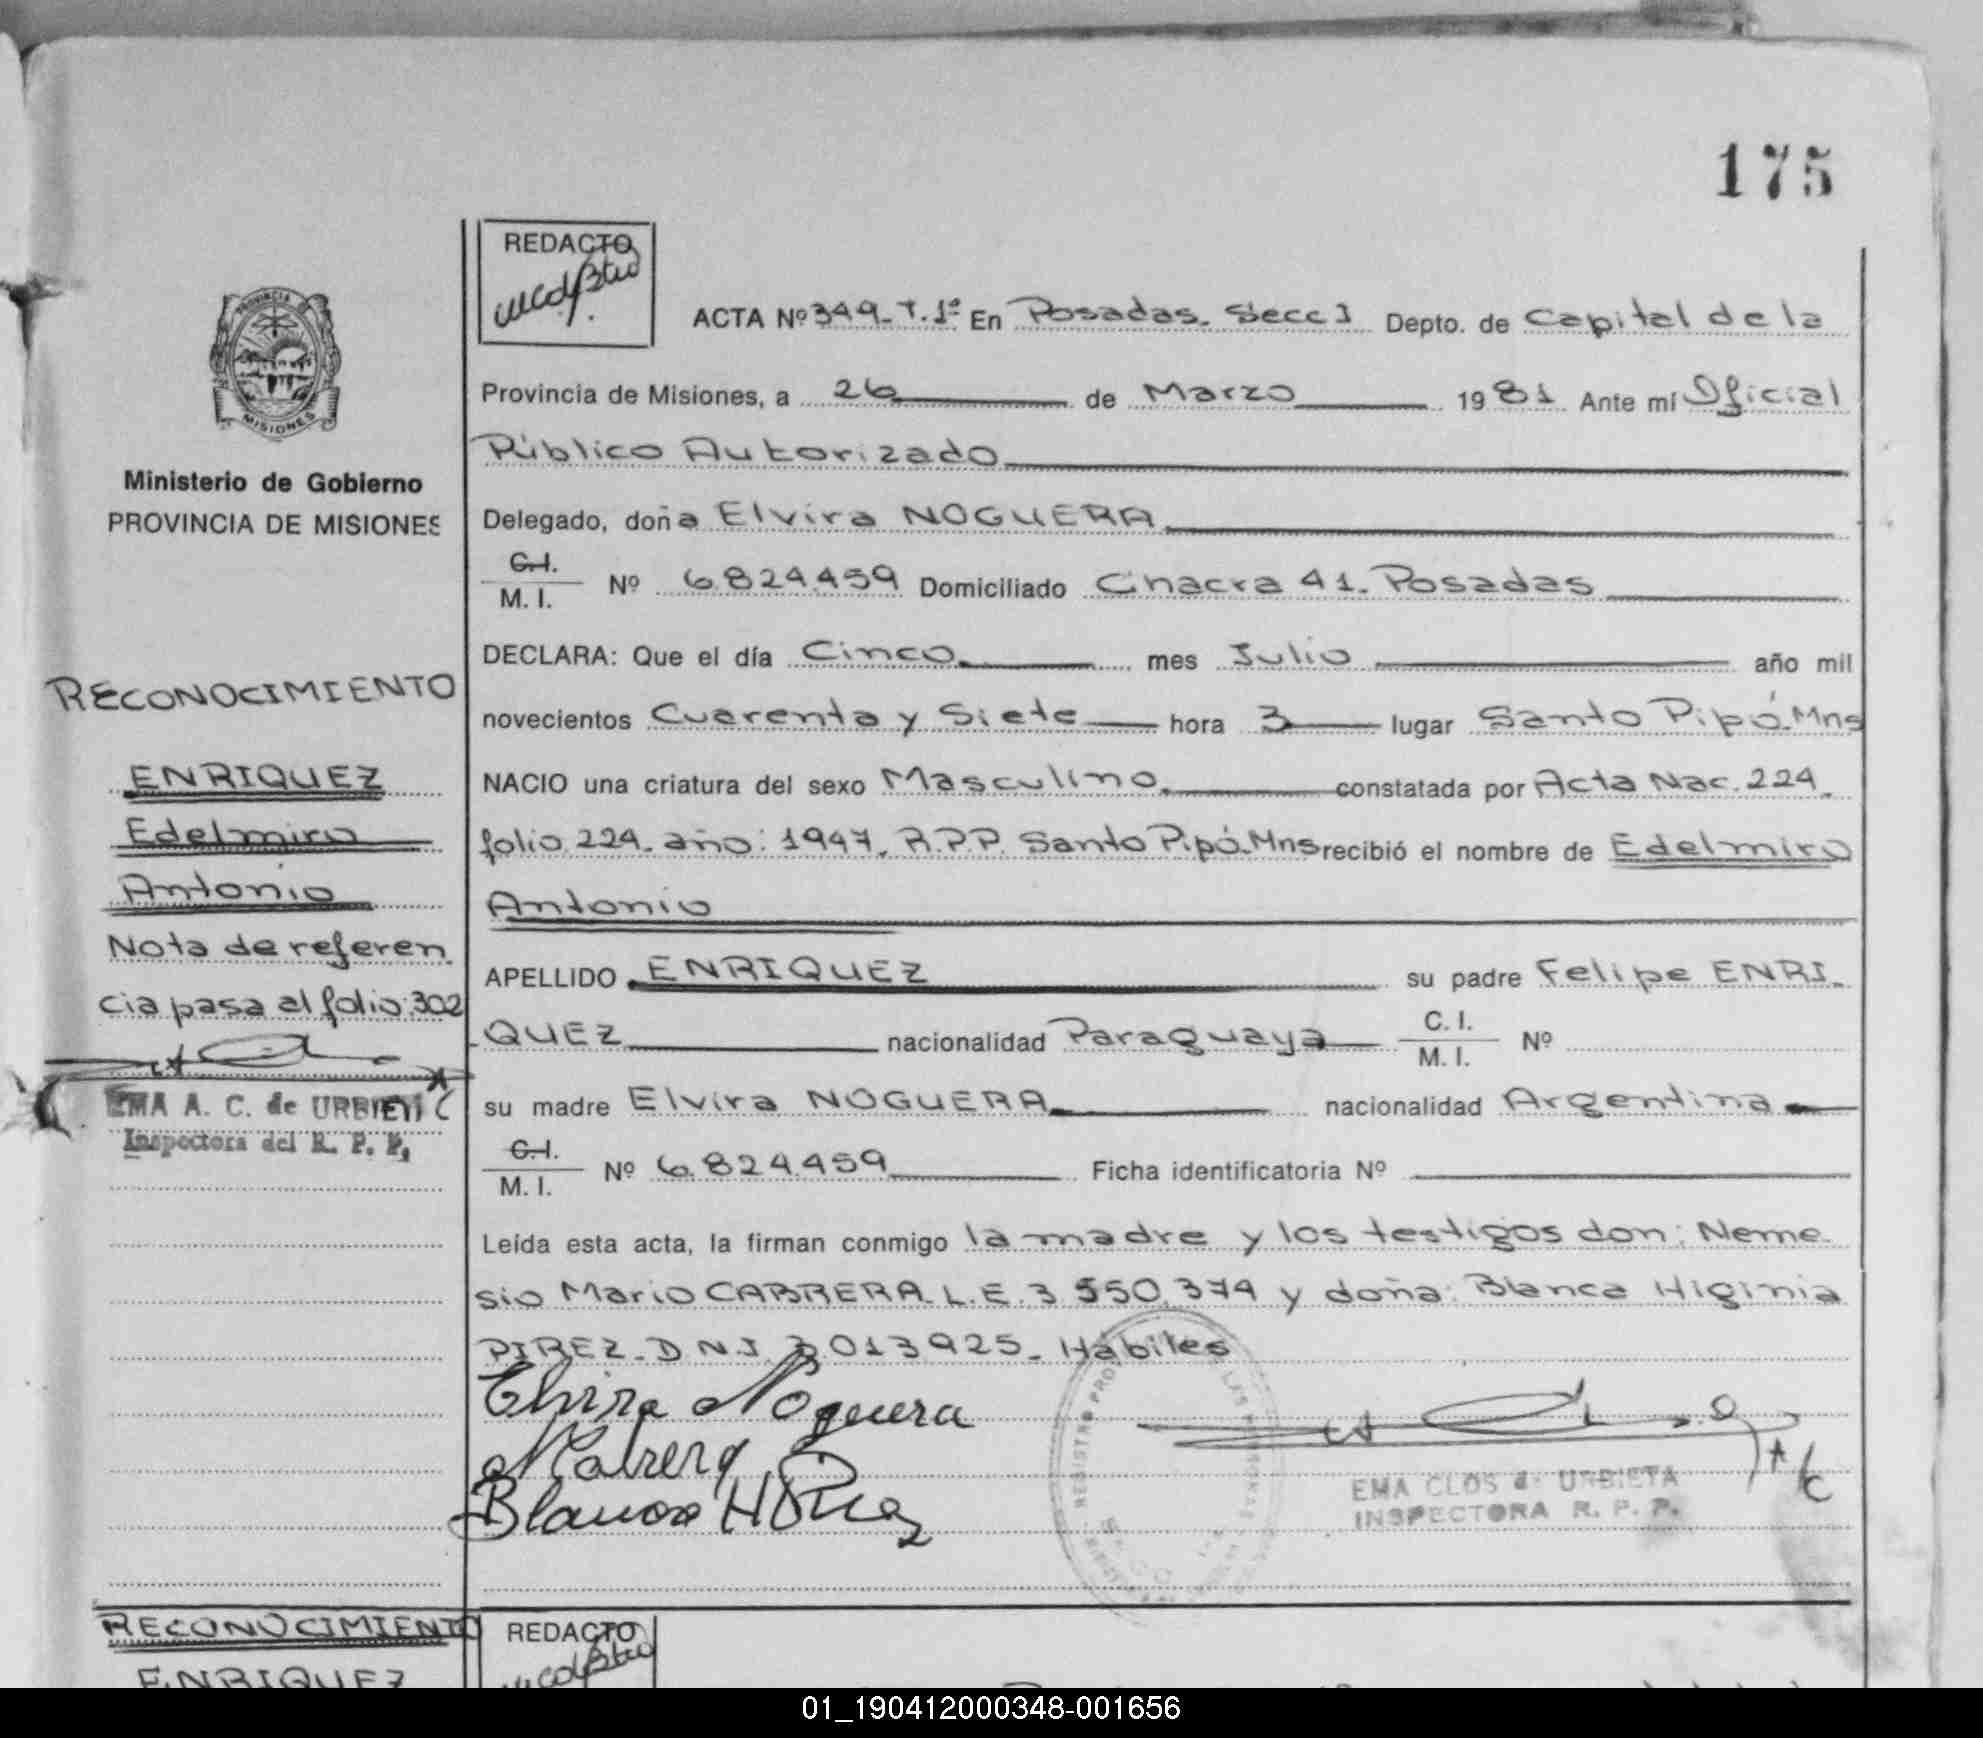 175
REDACTO
ACTA Nº 349_T.1º En Posadas. Secc 1 Depto. de Capital de la
Provincia de Misiones, a 26 de Marzo 1981 Ante mí Oficial
Público Autorizado
Delegado, doña Elvira NOGUERA
C.I. M. I. Nº 6.824.459 Domiciliado Chacra 41. Posadas
DECLARA: Que el día Cinco mes Julio año mil
novecientos Cuarenta y Siete hora 3 lugar Santo Pipó.Mns
NACIO una criatura del sexo Masculino. constatada por Acta Nac. 224.
folio 224. año: 1947. R.P.P. Santo Pipó.Mns recibió el nombre de Edelmiro
Antonio
APELLIDO ENRIQUEZ su padre Felipe ENRI-
QUEZ nacionalidad Paraguaya C. I. M. I. Nº
su madre Elvira NOGUERA nacionalidad Argentina
C.I. M. I. Nº 6.824.459 Ficha identificatoria Nº
Leída esta acta, la firman conmigo la madre y los testigos don: Neme-
sio Mario CABRERA. L.E. 3.550.374 y doña: Blanca Higinia
PIREZ. D N I 3.013925. Hábiles
Elvira Noguera
MCabrera
Blanca H Pirez
EMA CLOS de URBIETA
INSPECTORA R. P. P.
PROVINCIA DE
MISIONES
Ministerio de Gobierno
PROVINCIA DE MISIONES
RECONOCIMIENTO
ENRIQUEZ
Edelmiro
Antonio
Nota de referen
cia pasa al folio:302
EMA A. C. de URBIETA
Inspectora del R. P. P.
RECONOCIMIENTO
ENRIQUEZ
REDACTO
01_190412000348-001656